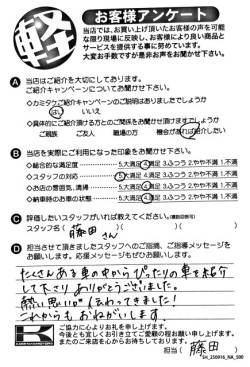 軽
お客様アンケート
当店では、お買い上げ頂いたお客様の声を可能
な限り現場に反映し、お客様により良い商品と
サービスを提供する事に努めています。
大変お手数ですが是非お声をお聞かせ下さい。
A 当店はご紹介を大切にしております。
ご紹介キャンペーンについてお聞かせ下さい。
◇カミタケご紹介キャンペーンのご説明はありましたでしょうか
はい いいえ
◇具体的にご紹介頂ける方とのご関係をお聞かせ頂けますでしょうか
ご親族 ご友人 職場の方 機会があれば紹介したい
B 当店を実際にご利用になった印象をお聞かせ下さい。
◇総合的な満足度 5.大満足 4.満足 3.ふつう 2.やや不満 1.不満
◇スタッフの対応 5.大満足 4.満足 3.ふつう 2.やや不満 1.不満
◇お店の雰囲気、清掃 5.大満足 4.満足 3.ふつう 2.やや不満 1.不満
◇納車時のお車の状態 5.大満足 4.満足 3.ふつう 2.やや不満 1.不満
C 評価したいスタッフがいれば教えてください。(複数回答可)
スタッフ名( 藤田さん )( )( )
D 担当させて頂きましたスタッフへのご指摘、ご指導メッセージを
お願いします。応援メッセージもぜひお願いします。
たくさんある車の中からぴったりの車を紹介
して下さり ありがとうございました。
熱い思いが伝わってきました!
これからもおねがいします。
K
ご協力に心よりお礼を申し上げます。
今後とも宜しくお引き立てご愛顧の程お願い申し上げます。
またのご来店を心からお待ちしております。
担当( 藤田 )
SH_250916_NA_500